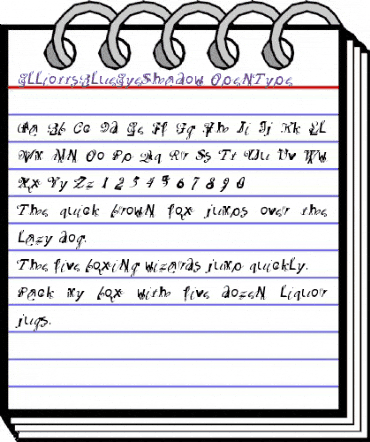 ElliottsBlueEyeShadow OpenType
Aa Bb Cc Dd Ee Ff Gg Hh Ii Jj Kk Ll
Mm Nn Oo Pp Qq Rr Ss Tt Uu Vv Ww
Xx Yy Zz 1 2 3 4 5 6 7 8 9 0
The quick brown fox jumps over the
lazy dog.
The five boxing wizards jump quickly.
Pack my box with five dozen liquor
jugs.